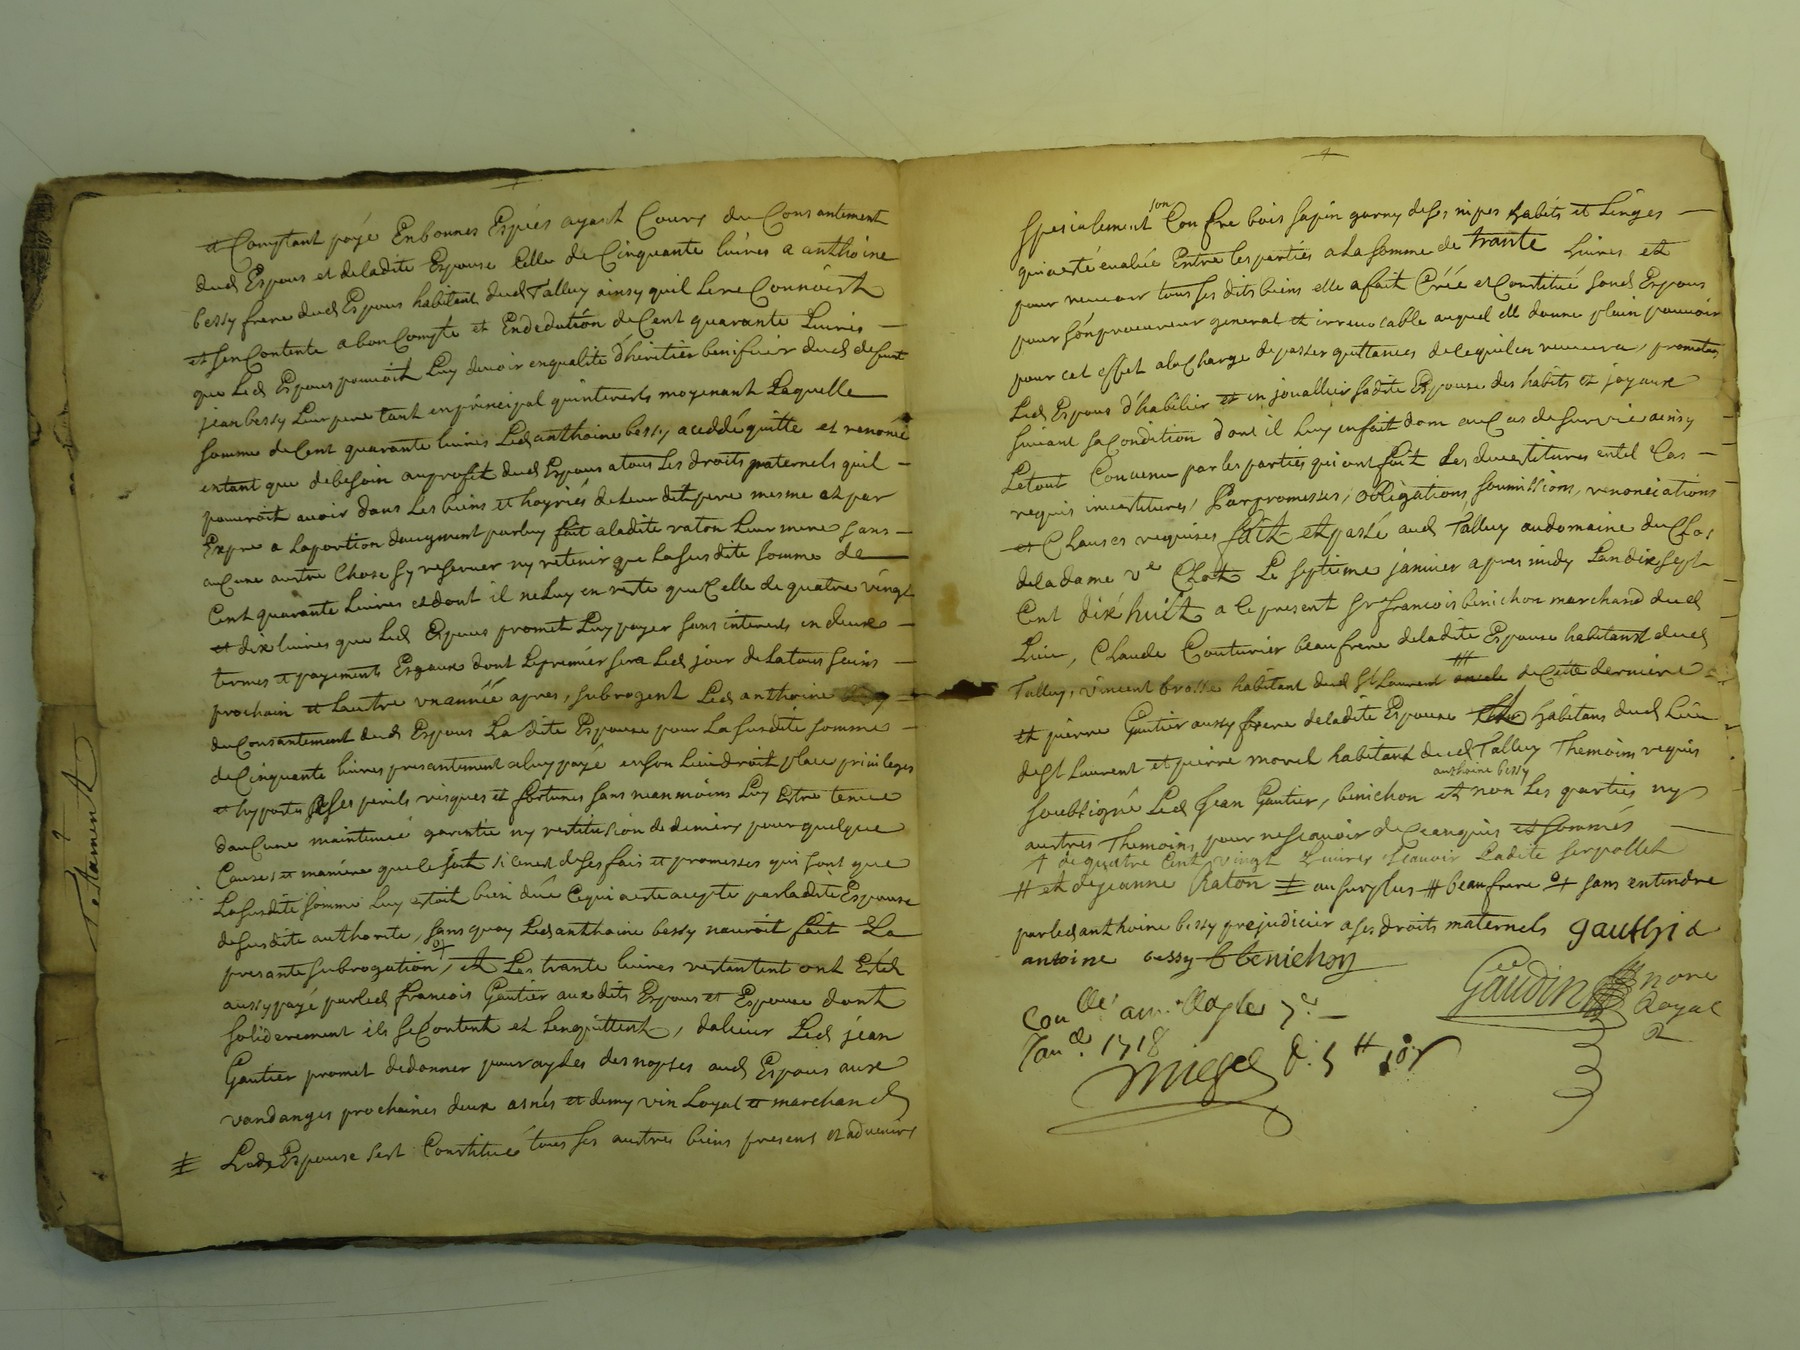 et Comptant payé En bonnes Espéés ayant Cours du Consantement
dud Espous et deladite Espouse Celle de Cinquante liüres a anthoine
bessy frere dud Espous habitant dud Talluy ainsy quil Le reConnoist
et sen Contente a bon Compte et En dedution de Cent quarante Liüres
que Led Espous pouuoit Luy deuoir en qualité d'héritier benificier dud defunt
jean bessy Leur pere tant en principal quinterests moyenant Laquelle
somme de Cent quarante liüres Led anthoine bessy a ceddé quitte et renoncé
entant que de besoin au profit dud Espous a tous Les droits paternels quil
pouuroit auoir dans Les biens et hoyriés de Leur dit pere mesme et par
Expre a La portion daugment par luy fait a ladite raton Leur mere sans
auCune austre Chose sy reseruer ny retenir que La susdite somme de
Cent quarante Liüres et dont il ne Luy en reste que Celle de quatre vingt
et dix liüres que Led Espous promet Luy payer sans interests en deux
termes et payements Esgaux dont Le premier sera Led jour de La tous sains
prochain et Lautre vn année apres, subrogent Led anthoine bessy
du Consantement dud Espous La dite Espouse pour La susdite somme
de Cinquante liüres presantement a luy payé en son Lieu droit place priuileges
et hypoteques a ses perils risques et fortunes sans neanmoins Luy Estre tenue
dauCune maintenüé garentie ny restitution de deniers pour quelque
Cause et maniére que Ce soit si Cenest de ses fais et promesses qui sont que
La susdite somme Luy estoit bien düe Ce qui a esté acepté par ladite Espouse
de susdite authorite, sans quoy Led anthoine bessy nauroit fait La
presante subrogation, et Les trante liüres restantent ont Estés
aussy payé par led françois Gautier aux dits Espous et Espouse dont
soliderement ils se Contente et Lenquittent, dalieur Led jean
Gautier promet de donner pour aydes des nopses aud Espous aux
vandanges prochaines deux asnés et demy vin Loyal et marchand
Lad Espouse sest Constitué tous ses austres biens presens et aduenirs
Testament
spesialement son Coufre bois sapin garny de ses nipes habits et Linges
qui a esté éualüé Entre les partiés a La somme de trante Liüres et
pour receuoir tous ses dits biens elle a fait Créé et Constitué sond Espous
pour son procureur general et irreuocable auquel elle donne plain pouuoir
pour cet effet a la Charge de passer quittances de Ce quil en receura, prometan
Led Espous d'habilier et en jouallier sadite Espouse des habits et joyaux
suiuant sa Condition dont il Luy en fait don au Cas de suruie ainsy
Le tout Conuenu par les parties qui ont fait Les deuestitures en tel Cas
requis inuestitures, Par promesses, obligations, soumissions, renonciations
et Clauses requises fait et passé aud Talluy au domaine du Clos
de la dame ve Chot Le septiéme januier apres midy Lan dix sept
Cent dix huit a Ce present sr françois benichon marchand dud
Lieu, Claude Couturier beau frere deladite Espouse habitant dud
Talluy, vincent brosse habitant dud St Laurent oncle de Cette derniére
et pierre Gautier aussy frere deladite Espouse habitans dud Lieu
de St Laurent et pierre morel habitant dud Talluy Themoins requis
anthoine bessy
soubsigné Led Jean Gautier, benichon et non Les parties ny
austres Themoins pour ne scauoir de Ce enquis et sommés
de quatre Cent vingt Liüres scauoir Ladite serpollet
et de jeanne Raton au surplus beau frere sans entendre
par led anthoine bessy prejudicier a ses droits maternels gauthié
antoine bessy Benichon
Gaudin nore Royal
Janer. 1718